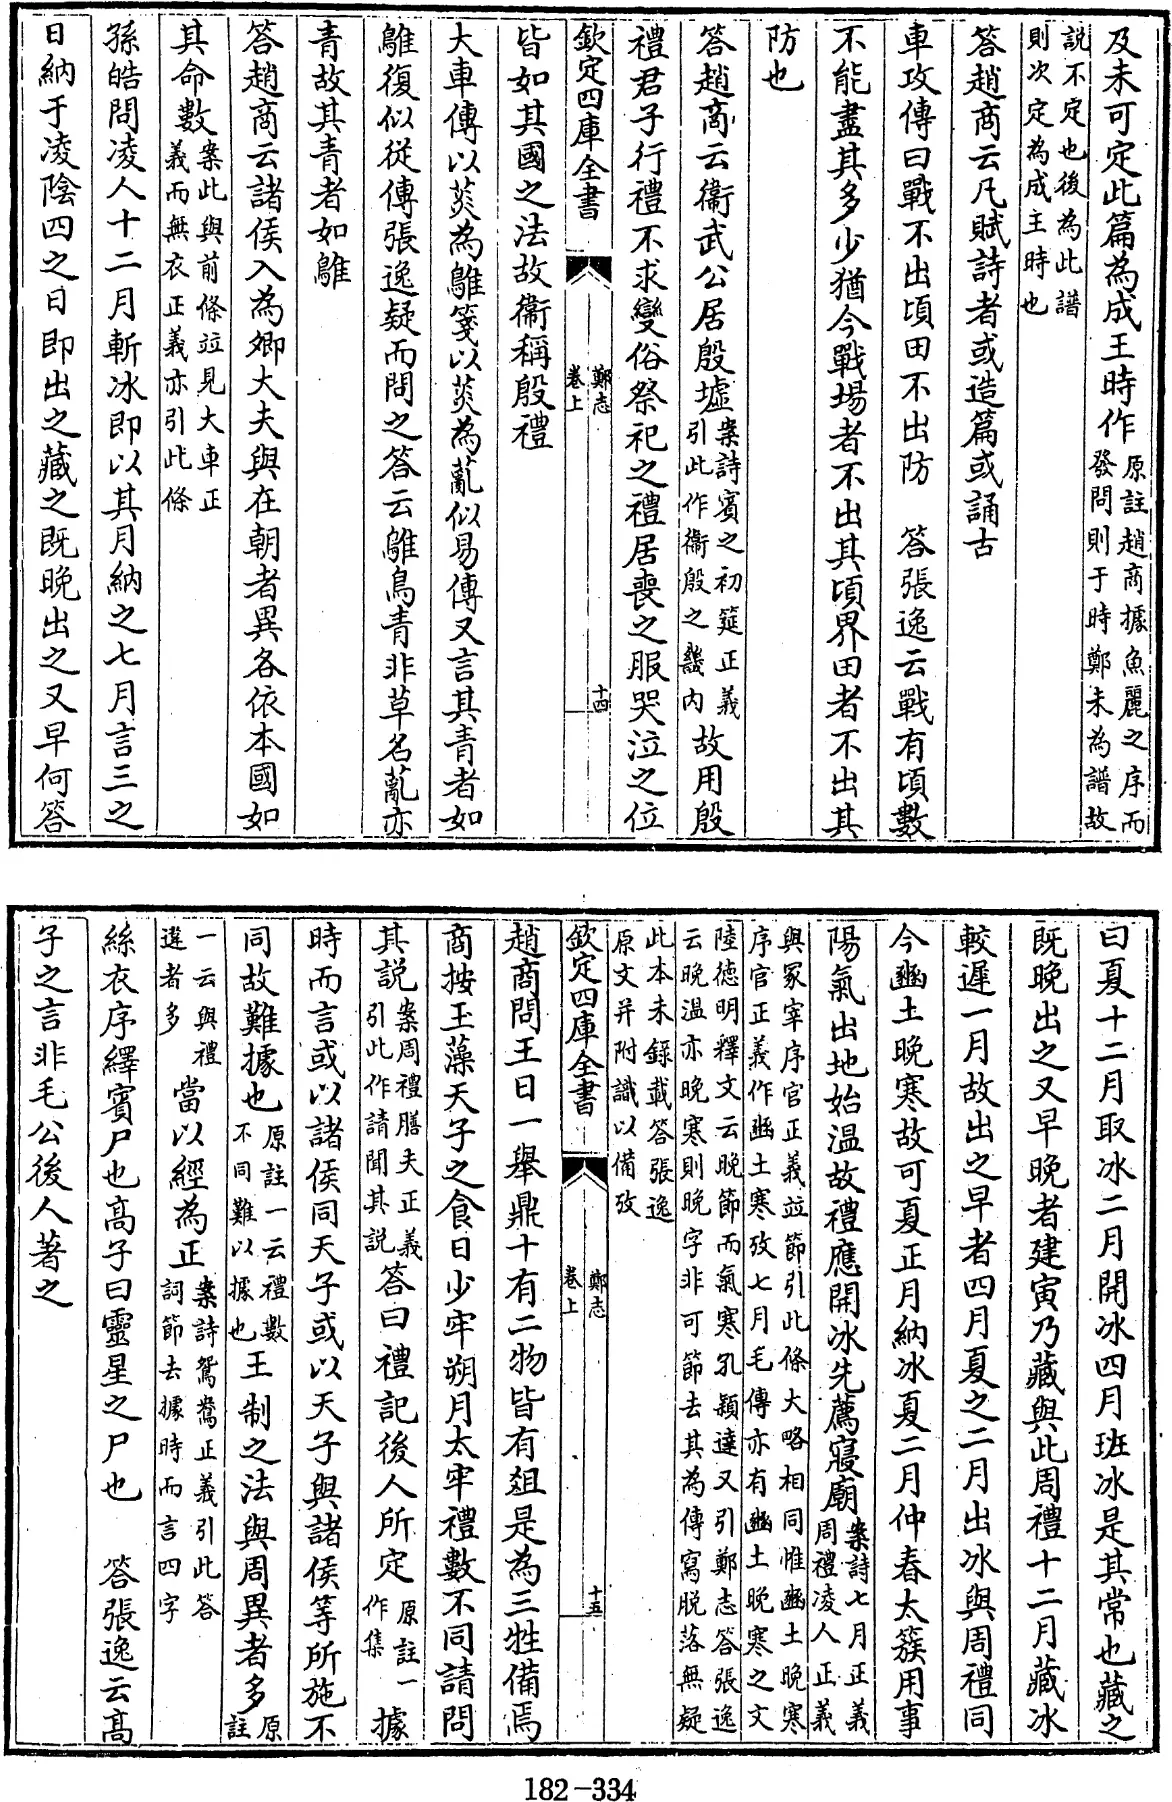 及未可定此篇為成王時作原註趙商據魚麗之序而發問則于時鄭未為譜故
說不定也後為此譜則次定為成王時也
答趙商云凡賦詩者或造篇或誦古
車攻傳曰戰不出頃田不出防　答張逸云戰有頃數
不能盡其多少猶今戰場者不出其頃界田者不出其
防也
答趙商云衛武公居殷墟案詩賓之初筵正義引此作衛殷之畿內故用殷
禮君子行禮不求變俗祭祀之禮居喪之服哭泣之位
欽定四庫全書　鄭志卷上　十四
皆如其國之法故衛稱殷禮
大車傳以菼為鵻箋以菼為薍似易傳又言其青者如
鵻復似從傳張逸疑而問之答云鵻鳥青非草名薍亦
青故其青者如鵻
答趙商云諸侯入為卿大夫與在朝者異各依本國如
其命數案此與前條竝見大車正義而無衣正義亦引此條
孫皓問凌人十二月斬冰即以其月納之七月言三之
日納于凌陰四之日即出之藏之既晚出之又早何答
曰夏十二月取冰二月開冰四月班冰是其常也藏之
既晚出之又早晚者建寅乃藏與此周禮十二月藏冰
較遲一月故出之早者四月夏之二月出冰與周禮同
今豳土晚寒故可夏正月納冰夏二月仲春太簇用事
陽氣出地始溫故禮應開冰先薦寢廟案詩七月正義周禮凌人正義
與冢宰序官正義竝節引此條大略相同惟豳土晚寒序官正義作豳土寒攷七月毛傳亦有豳土晚寒之文
陸德明釋文云晚節而氣寒孔穎達又引鄭志答張逸云晚溫亦晚寒則晚字非可節去其為傳寫脫落無疑
此本未錄載答張逸原文并附識以備攷
欽定四庫全書　鄭志卷上　十五
趙商問王日一舉鼎十有二物皆有俎是為三牲備焉
商按玉藻天子之食日少牢朔月太牢禮數不同請問
其說案周禮膳夫正義引此作請聞其說答曰禮記後人所定原註一作集據
時而言或以諸侯同天子或以天子與諸侯等所施不
同故難據也原註一云禮數不同難以據也王制之法與周異者多原註
一云與禮違者多當以經為正案詩鴛鴦正義引此答詞節去據時而言四字
絲衣序繹賓尸也高子曰靈星之尸也　答張逸云高
子之言非毛公後人著之
182-334